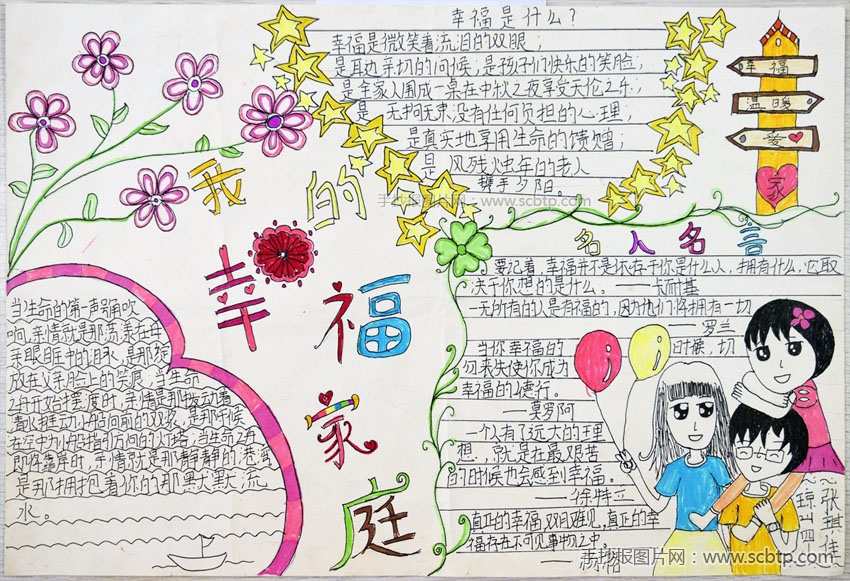 幸福是什么?
幸福是微笑着流泪的双眼;
是耳边亲切的问候,是孩子们快乐的笑脸;
是全家人围成一桌在中秋之夜享受天伦之乐;
是无拘无束没有任何负担的心理;
是真实地享用生命的馈赠;
是风残烛年的老人
携手夕阳。
手抄报图片网:www.scbtp.com
幸福
温暖
爱
家
我的
幸福
家庭
名人名言
要记着,幸福并不是依存于你是什么人,拥有什么,它取
决于你想的是什么。——卡耐基
一无所有的人是有福的,因为他们将拥有一切
——罗兰
当你幸福的时候,切
勿丧失使你成为
幸福的德行。
——莫罗阿
一个人有了远大的理
想,就是在最艰苦
的时候也会感到幸福。
——徐特立
真正的幸福双目难见,真正的幸
福存在不可见事物之中。
当生命的第一声号吹
响,亲情就是那荡漾在母
亲眼眶中的泪水,是那绽
放在父亲脸上的笑痕;当生命
之舟开始摆渡时,亲情是那拨动着
着水推动小舟向前的双桨,是那千候
在空中为小船指引方向的火塔;当生命之舟
即将靠岸时,亲情就是那静静的港湾
是那拥抱着你的那黑大黑大流
水。
手抄报图片网:www.scbtp.com